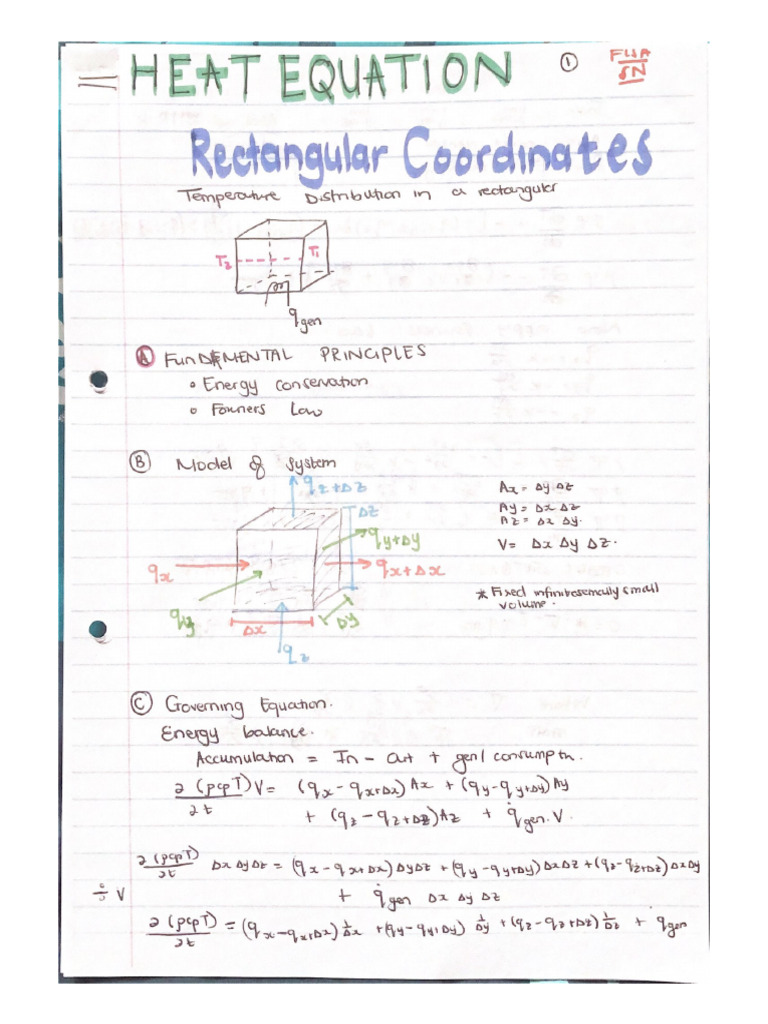 HEAT EQUATION ①
Rectangular Coordinates
Temperature Distribution in a rectangular
T₂ T₁
q gen
Ⓐ FUNDAMENTAL PRINCIPLES
• Energy conservation
• Fouriers Law
Ⓑ Model of system
q z+Δz
Ax = Δy Δz
Ay = Δx Δz
Az = Δx Δy.
V = Δx Δy Δz.
Δz
q y+Δy
q x
q x+Δx
* Fixed infinitesemally small
volume.
q y
Δx
Δy
q z
Ⓒ Governing Equation.
Energy balance.
Accumulation = In - Out + gen/ consumptn.
∂(ρcpT)/∂t V = (qx - qx+Δx)Ax + (qy - qy+Δy)Ay
+ (qz - qz+Δz)Az + q̇gen. V.
∂(ρcpT)/∂t Δx Δy Δz = (qx - qx+Δx)ΔyΔz + (qy - qy+Δy)ΔxΔz + (qz - qz+Δz)ΔxΔy
÷ V + q̇gen Δx Δy Δz
∂(ρcpT)/∂t = (qx - qx+Δx) 1/Δx + (qy - qy+Δy) 1/Δy + (qz - qz+Δz) 1/Δz + q̇gen